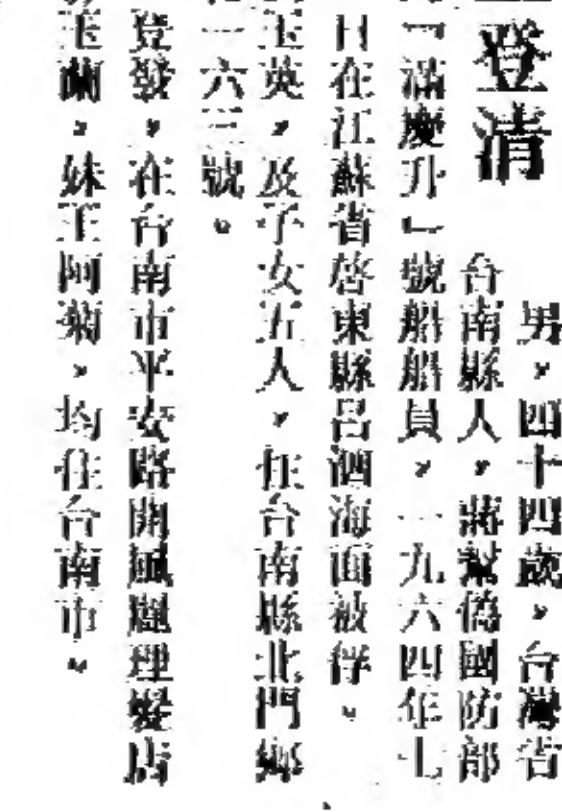 登清
男，四十四歲，台灣省
台南縣人，蔣幫偽國防部
「滿慶升」號船船員，一九六四年七
日在江蘇省啓東縣呂泗海面被俘。
玉英，及子女五人，在台南縣北門鄉
一六三號。
登發，在台南市平安路開鳳麗理髮店
玉蘭，妹王阿菊，均住台南市。